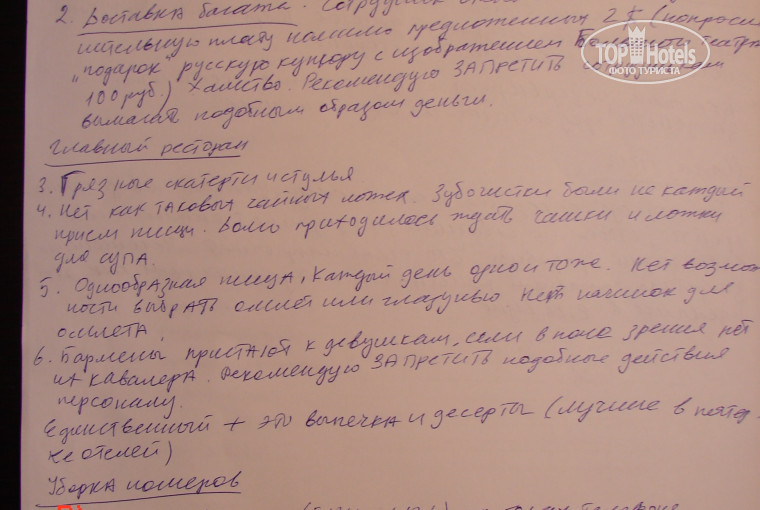 2. Доставка багажа. Сотрудник
ительную плату помимо предложенных 2$ (попросил
"подарок" русскую купюру с изображением Большой театр
100 руб.) Хамство. Рекомендую ЗАПРЕТИТЬ
вымагать подобным образом деньги.
Главный ресторан
3. Грязные скатерти и стулья
4. Нет как таковых чайных ложек. Зубочистки были не каждый
прием пищи. Долго приходилось ждать чашки и ложки
для супа.
5. Однообразная пища, каждый день одно и тоже. Нет возмож
ности выбрать омлет или глазунью. Нет начинок для
омлета.
6. Бармены пристают к девушкам, если в поле зрения нет
их кавалера. Рекомендую ЗАПРЕТИТЬ подобные действия
персоналу.
Единственный + это выпечка и десерты (лучшие в пятёр-
ке отелей)
Уборка номеров
TOP Hotels
ФОТО ТУРИСТА